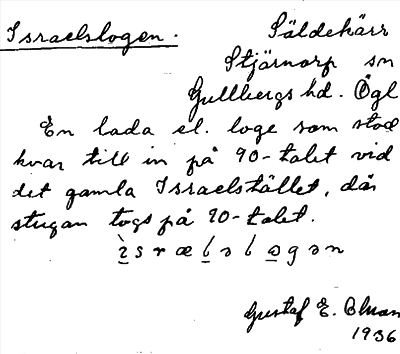 Israelslogen. Säldekärr
Stjärnorp sn
Gullbergs hd. Ögl
En lada el. loge som stod
kvar till in på 90-talet vid
det gamla Israelstället, där
stugan togs på 70-talet.
Gustaf E. Ohman
1936